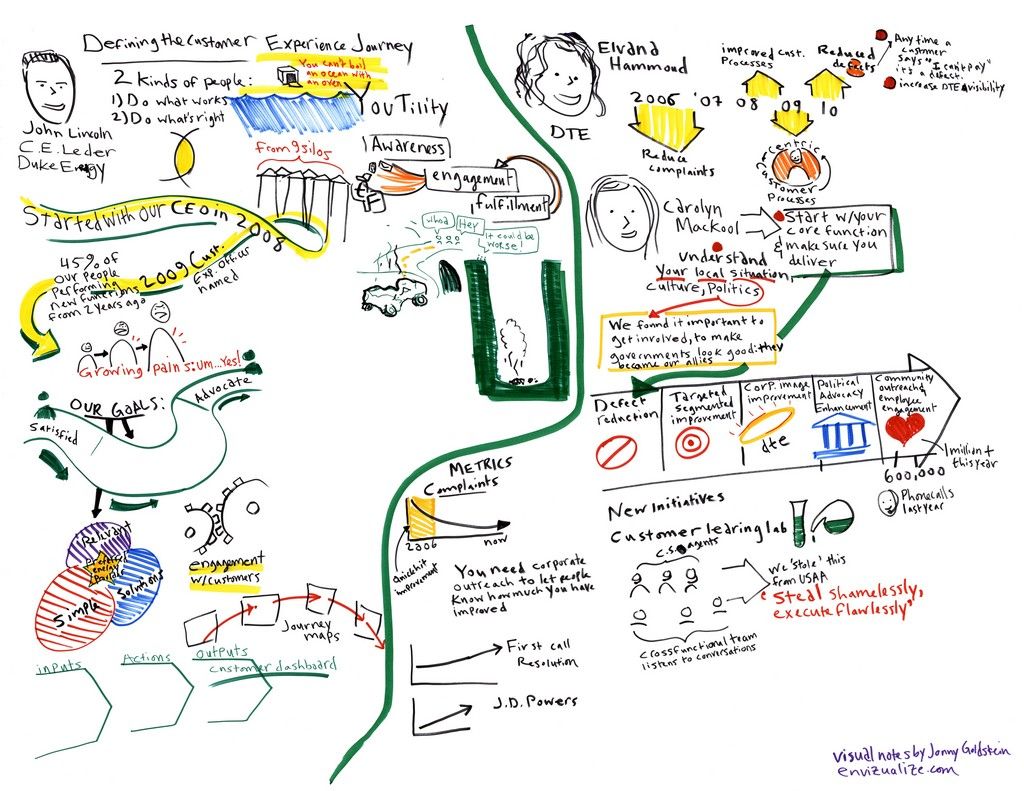 Defining the Customer Experience Journey
John Lincoln
C.E. Leder
Duke Energy
2 kinds of people:
1) Do what works
2) Do what's right
You can't boil
an ocean with
an oven
YouTility
From 9 silos
Awareness
engagement
fulfillment
Started with our CEO in 2008
2009 Cust.
Exp. officer
named
45% of
our people
performing
new functions
from 2 years ago
Growing pains: um...Yes!
whoa
Hey
it could be
worse!
OUR GOALS:
Satisfied
Advocate
Relevant
Preferred
energy
Simple
Solutions
engagement
w/customers
Journey
maps
inputs
Actions
outputs
Customer dashboard
METRICS
Complaints
2006
now
improvement
You need corporate
outreach to let people
know how much you have
improved
First call
Resolution
J.D. Powers
Elvana
Hammoud
DTE
improved cust.
processes
Reduced
defects
Any time a
customer
says "I can't pay"
it's a defect.
increase DTE visibility
2006 '07 08 09 10
Reduce
complaints
centric
customer
Processes
Carolyn
Mackool
Start w/your
core function
& make sure you
deliver
understand
your local situation,
culture, Politics
We found it important to
get involved, to make
governments look good: they
became our allies
Defect
reduction
Targeted
segmented
improvement
Corp. image
improvement
dte
Political
Advocacy
Enhancement
Community
outreach,
employee
engagement
1 million +
this year
600,000
Phone calls
last year
New Initiatives
Customer learing lab
C.S. agents
we 'stole' this
from USAA
"Steal shamelessly,
execute flawlessly"
crossfunctional team
listens to conversations
visual notes by Jonny Goldstein
envizualize.com